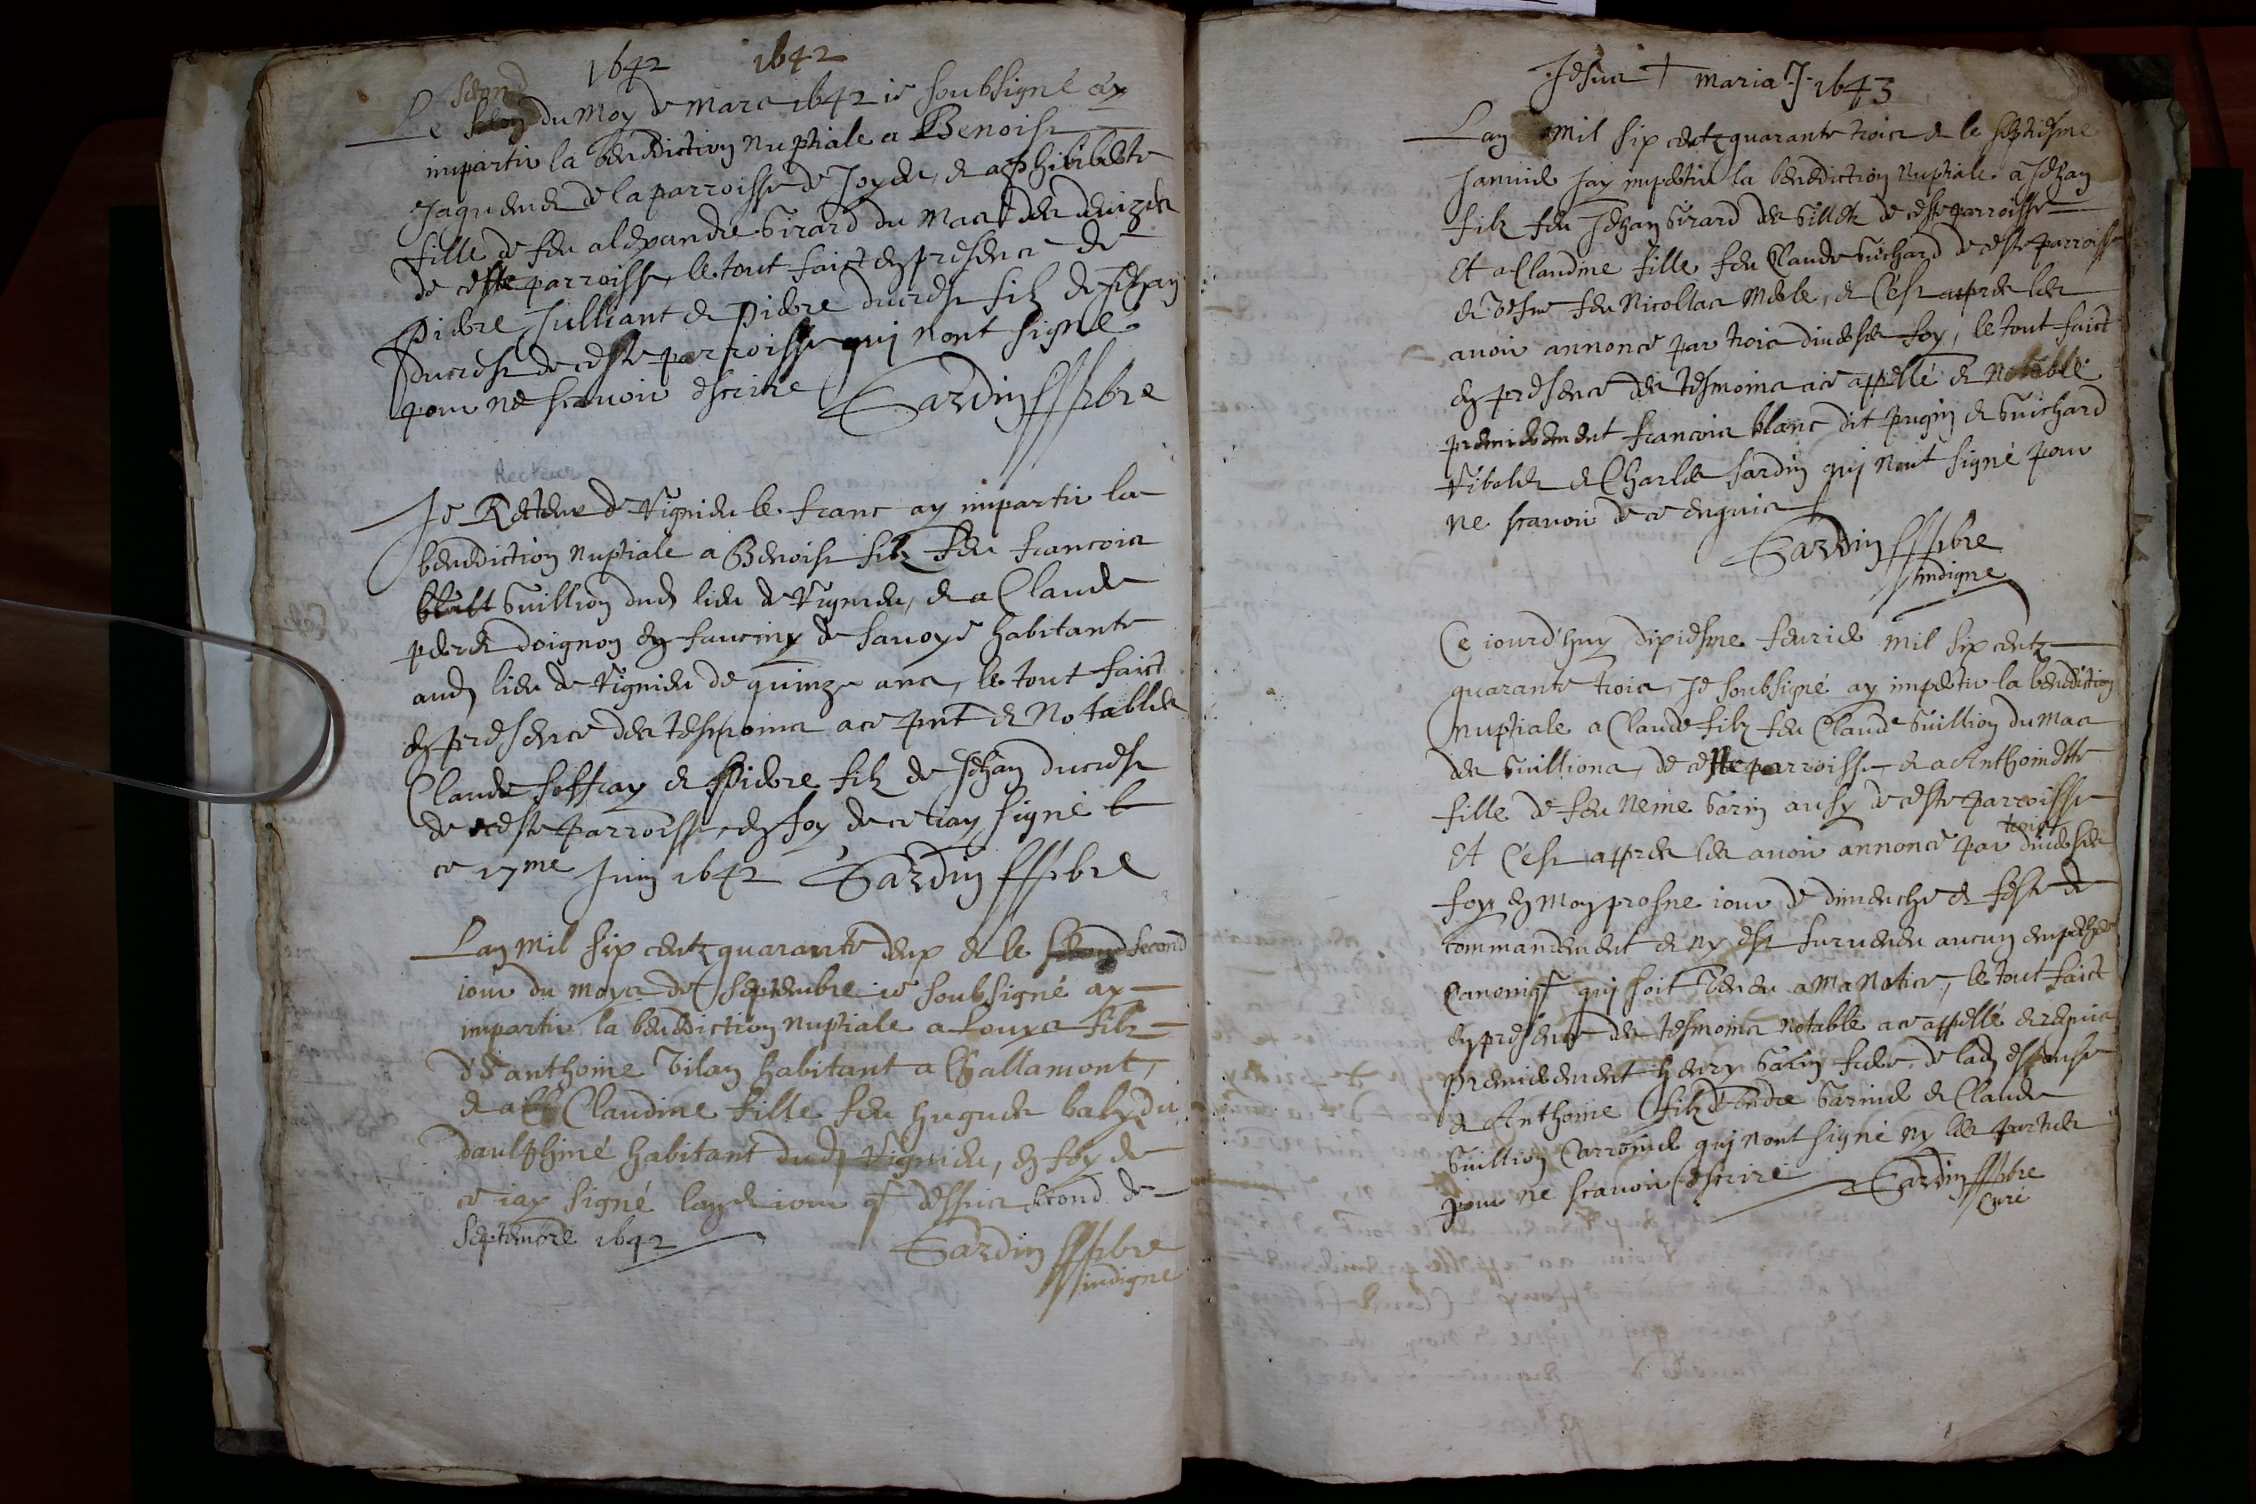 1642 1642
second
Le du Moy de Mars 1642 ie soubsigné ay
impartir la benediction Nuptiale a Benoist
Jaquemet de la parroisse de Joyeu, et a Philiberte
fille de feu alexandre Girard du Mas des
de ceste parroisse, le tout faict en presence de
Pierre Julliant et Pierre ducrest filz de Jehan
ducrest de ceste parroisse qui nont signé
pour ne scavoir escrire Sardin pbre
Recteur
Je Recteur de Vignieu le franc ay impartir la
benediction Nuptiale a Benoist filz feu francois
Guillion dud lieu de Vignieu, et a Claude
doignon en fauciny de Savoye habitante
aud lieu de Vignieu de quinze ans, le tout faict
en presence des tesmoins a ce pnt et Notables
Claude Joffray et Pierre filz de Jehan ducrest
de ceste parroisse, en foy de ce iay signé
ce 17me Juin 1642 Sardin pbre
Lan Mil six centz quarante deux et le second
iour du moys de Septembre ie soubsigné ay
impartir la benediction Nuptiale a Louys filz
d'anthoine Vilan habitant a Challamont,
et a Claudine fille feu hugues baly du
daulphiné habitant dud Vignieu, en foy de
ce iay signé lan et iour q dessus second de
Septembre 1642 Sardin pbre
indigne
Jesus + maria J. 1643
Lan Mil six centz quarante trois et le septiesme
Janvier Jay impertir la benediction Nuptiale a Jehan
filz feu Jehan Girard des Gillet de ceste parroisse
Et a Claudine fille feu Claude Guichard de ceste parroisse
et vefve feu Nicollas Mesle, et c'est apres les
avoir annonce par trois diverses foy, le tout faict
en presence des tesmoins a ce appellé et Notable
premierement francois blanc dit pugin et Guichard
et Charles Sardin qui nont signé pour
ne scavoir de ce enquis
Sardin pbre
indigne
Ce iourdhuy dixiesme feurier mil six centz
quarante trois, Je soubsigné ay impertir la benediction
Nuptiale a Claude filz feu Claude Guillion du Mas
des Guillions, de ceste parroisse, et a Anthoinette
fille de feu Neime Garin ausy de ceste parroisse
Et c'est apres les avoir annoncé par trois diverses
foys en Mon prosne iour de dimenche et feste de
commandement et ny est survenu aucun empeche
Canoniq qui soit venu a Ma Notice, le tout faict
en presence des tesmoins Notable a ce appellé et requis
premierement henry Garin frere de lad espouse
et Anthoine filz d'Andre Garinet et Claude
Guillion Carronier qui nont signé ny les parties
pour ne scavoir escrire Sardin pbre
Curé